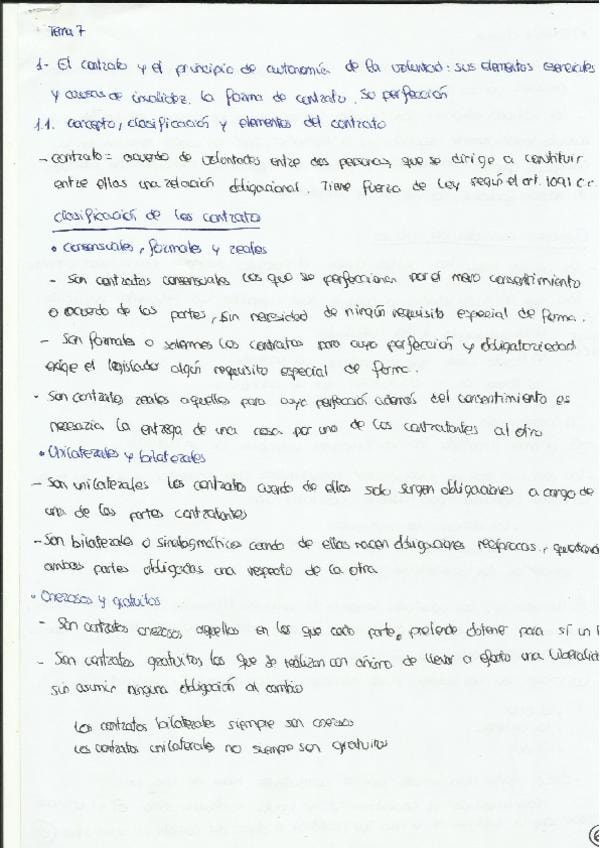 Tema 7
1- El contrato y el principio de autonomía de la voluntad: sus elementos esenciales
y causas de invalidez. La forma de contrato. Su perfección
1.1. Concepto, clasificación y elementos del contrato
- contrato = acuerdo de voluntades entre dos personas, que se dirige a constituir
entre ellas una relación obligacional. Tiene fuerza de Ley según el art. 1091 C.c.
clasificación de los contratos
• consensuales, formales y reales
- Son contratos consensuales los que se perfeccionan por el mero consentimiento
o acuerdo de las partes, sin necesidad de ningún requisito especial de forma.
- Son formales o solemnes los contratos para cuya perfección y obligatoriedad
exige el legislador algún requisito especial de forma.
- Son contratos reales aquellos para cuya perfección además del consentimiento es
necesaria la entrega de una cosa por uno de los contratantes al otro
• Unilaterales y bilaterales
- Son unilaterales los contratos cuando de ellos solo surgen obligaciones a cargo de
una de las partes contratantes
- Son bilaterales o sinalagmáticos cuando de ellos nacen obligaciones recíprocas, quedando
ambas partes obligadas una respecto de la otra
• Onerosos y gratuitos
- Son contratos onerosos aquellos en los que cada parte, pretende obtener para sí un
- Son contratos gratuitos los que se realizan con ánimo de llevar a efecto una liberalid
sin asumir ninguna obligación al cambio
Los contratos bilaterales siempre son onerosos
Los contratos unilaterales no siempre son gratuitos